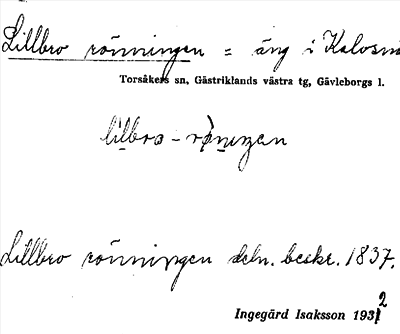 Lillbro rönningen = äng i Kalvsnä
Torsåkers sn, Gästriklands västra tg, Gävleborgs l.
lilbro - röningan
Lillbro rönningen deln. beskr. 1837.
Ingegärd Isaksson 1932